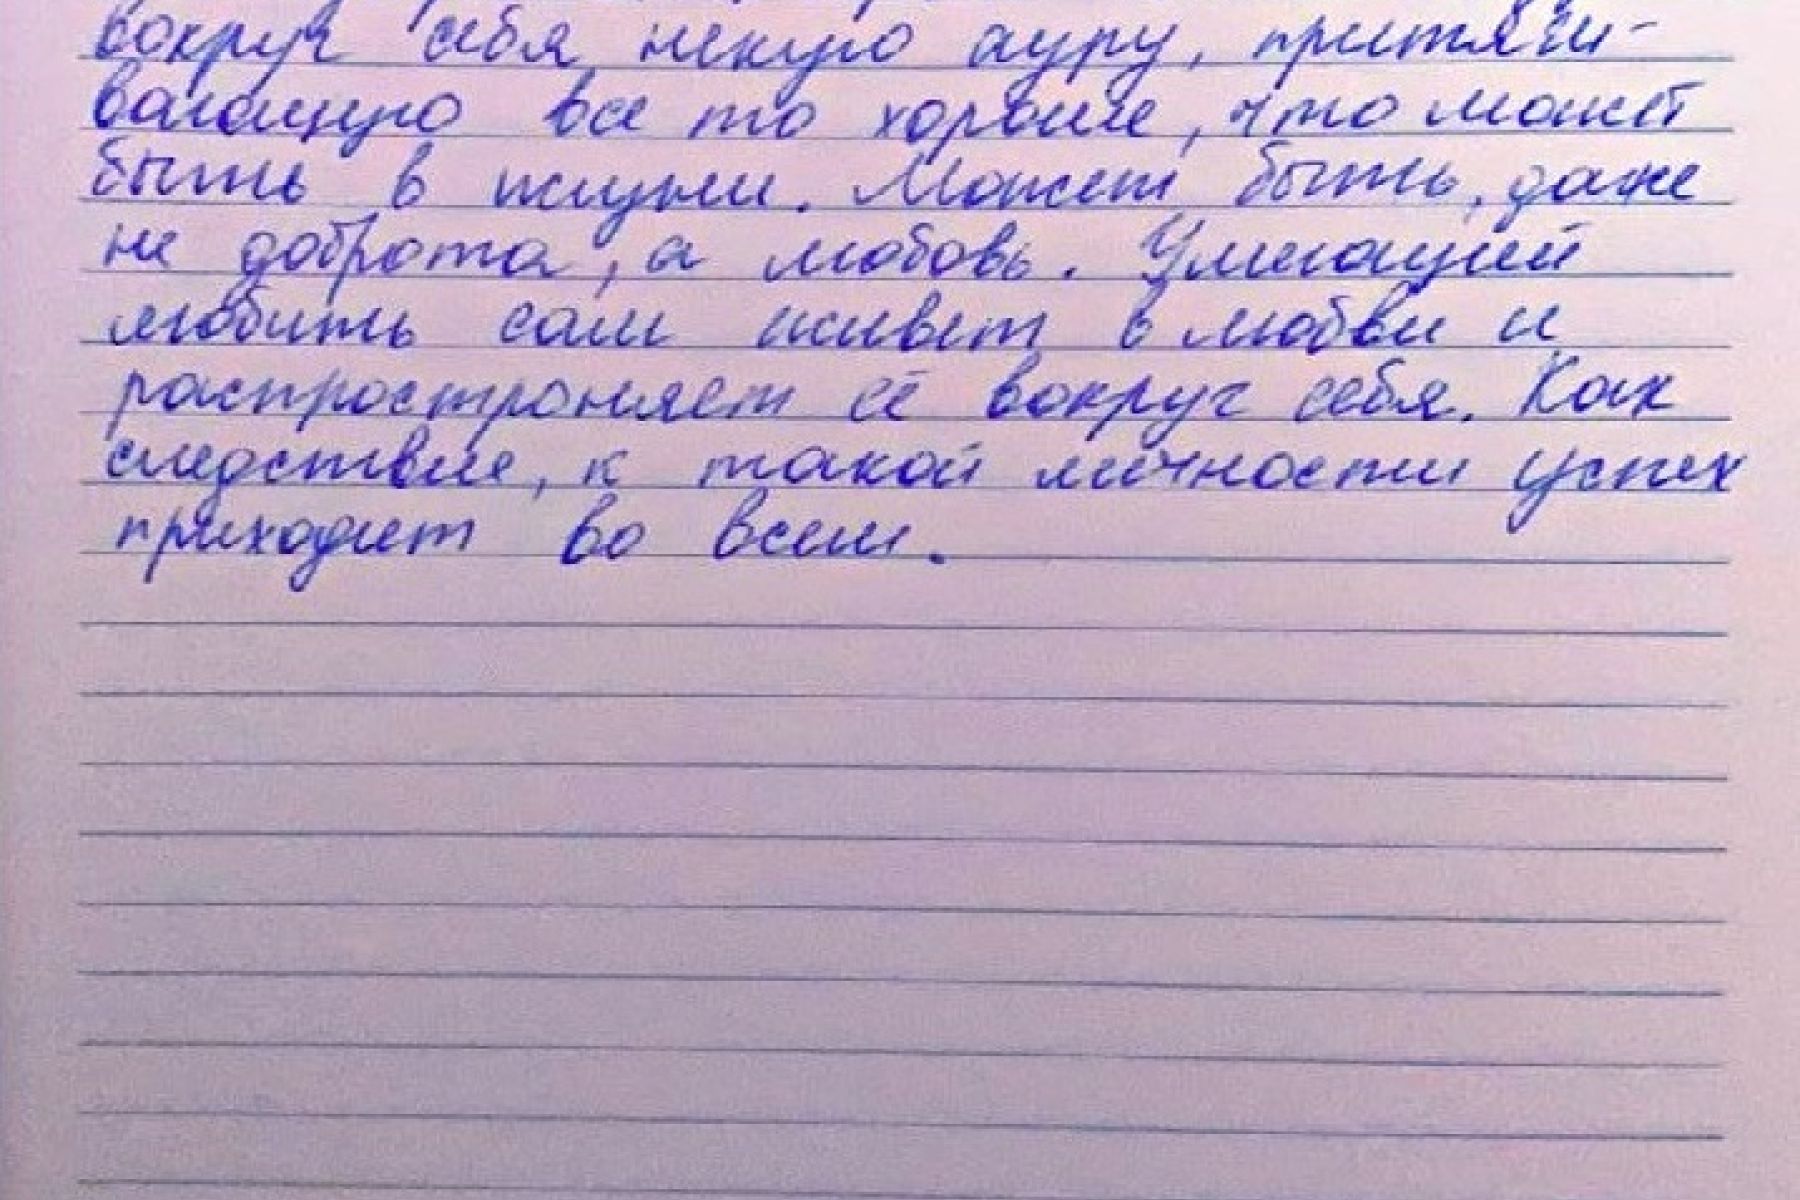 вокруг себя некую ауру, притяги-
вающую все то хорошее, что может
быть в жизни. Может быть, даже
не доброта, а любовь. Умеющий
любить сам живет в любви и
распространяет её вокруг себя. Как
следствие, к такой личности успех
приходит во всем.